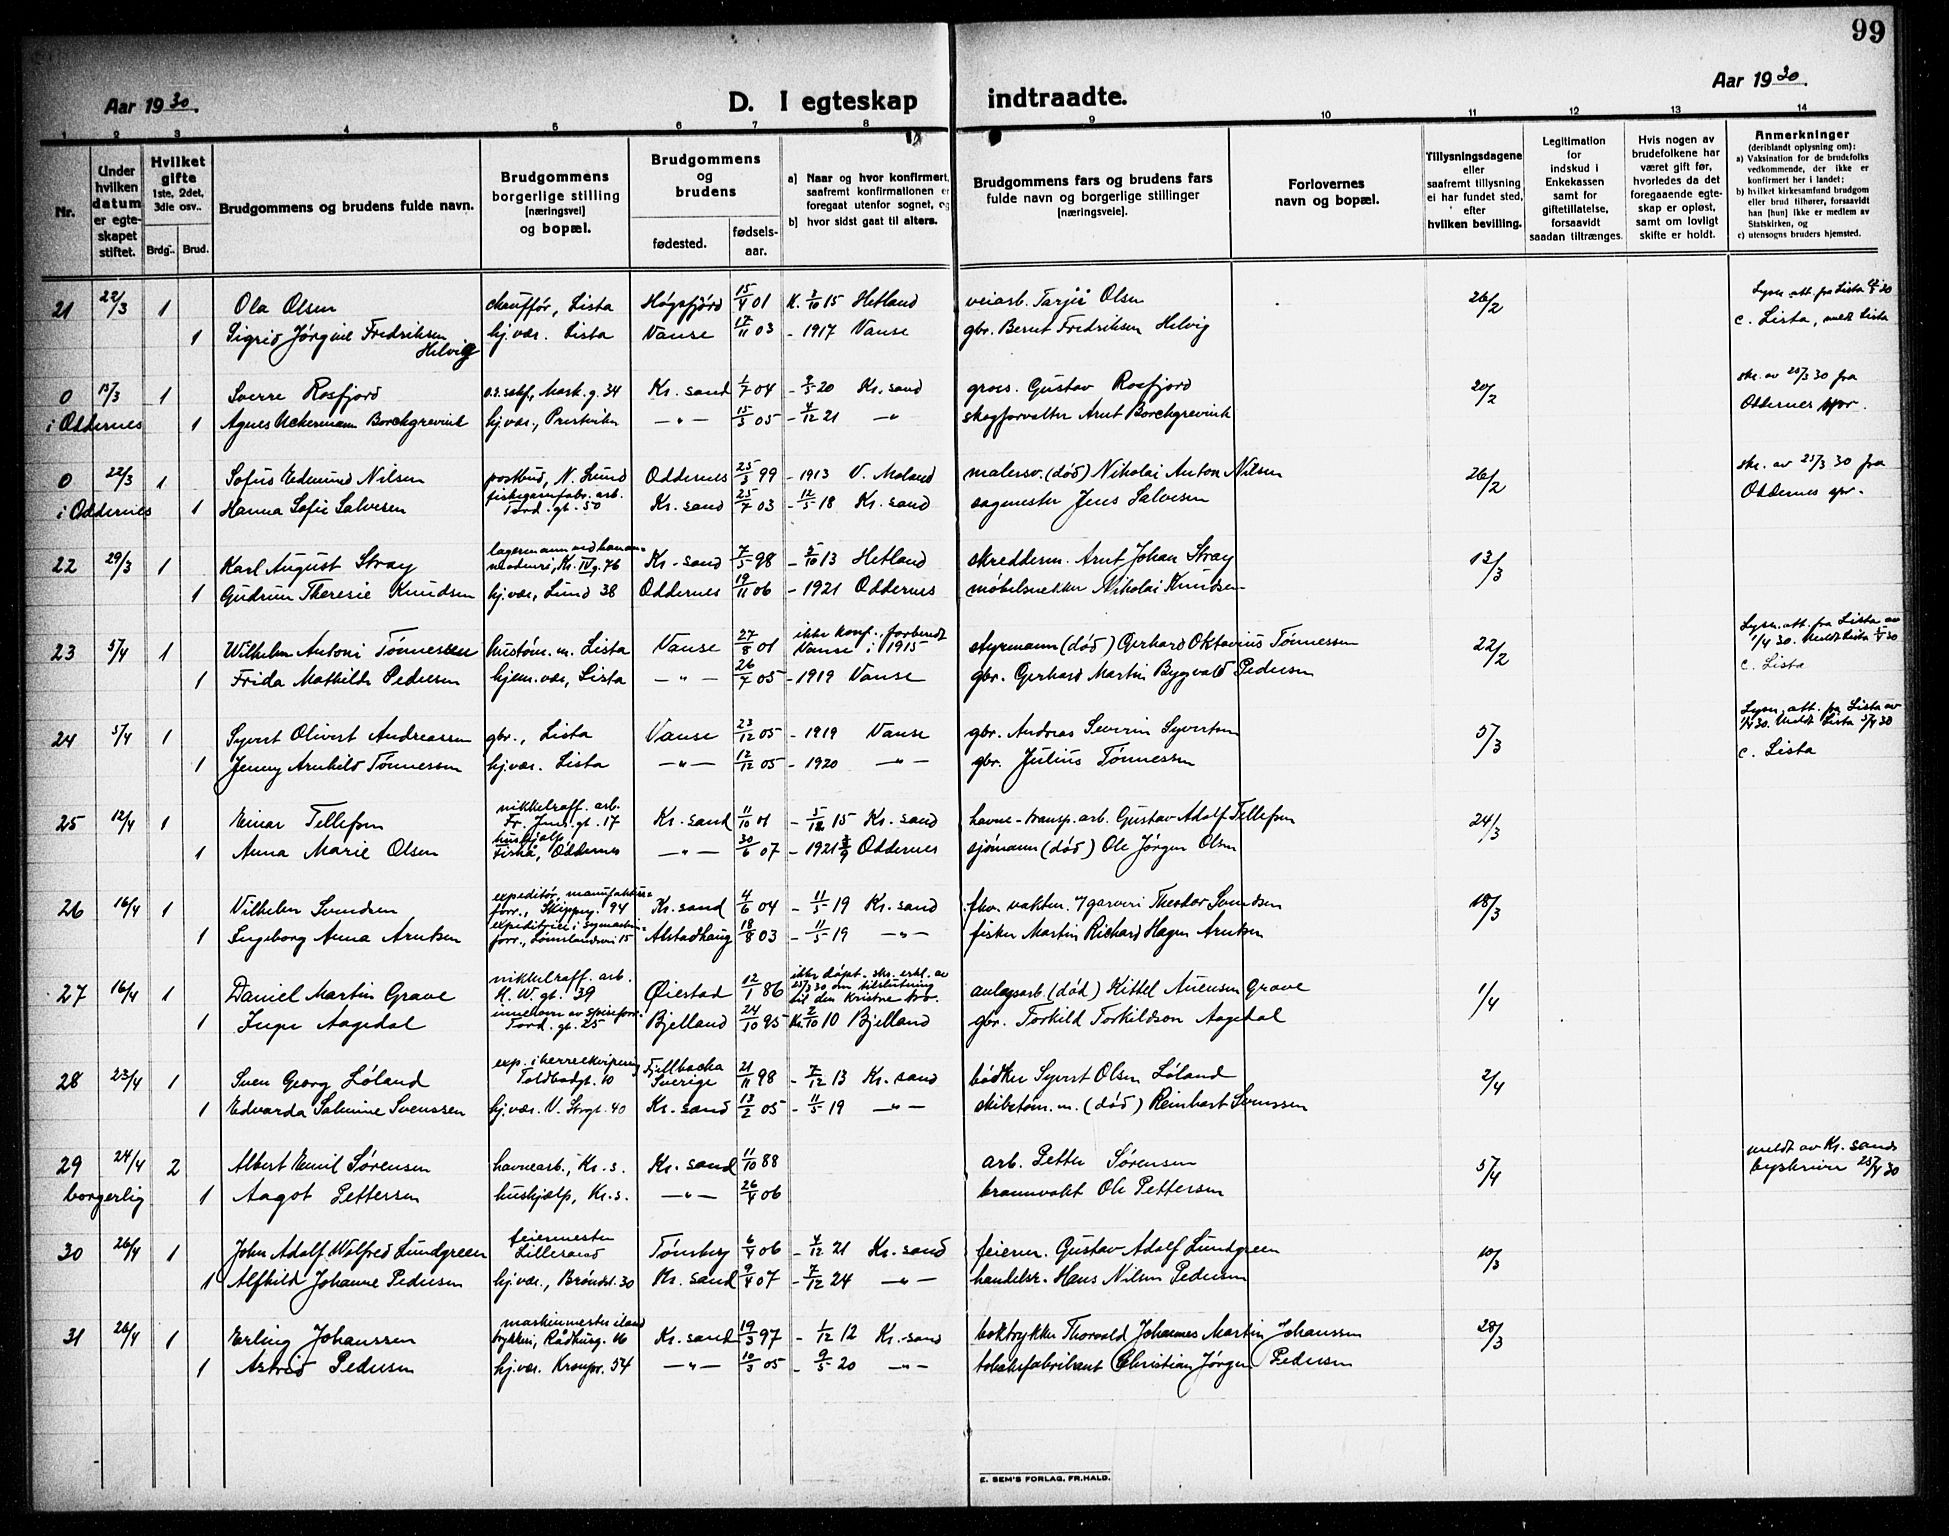 99
Aar 1930. D. I egteskap indtraadte. Aar 1930.
1 2 3 4 5 6 7 8 9 10 11 12 13 14
Nr.
Under hvilken datum er egteskapet stiftet.
Hvilket gifte 1ste, 2det, 3die osv..
Brdg.. Brud.
Brudgommens og brudens fulde navn.
Brudgommens borgerlige stilling [næringsvei] og bopæl.
Brudgommens og brudens
fødested. fødselsaar.
a) Naar og hvor konfirmert, saafremt konfirmationen er foregaat utenfor sognet, og
b) hvor sidst gaat til alters.
Brudgommens fars og brudens fars fulde navn og borgerlige stillinger [næringsveie].
Forlovernes navn og bopæl.
Tillysningsdagene eller saafremt tillysning ei har fundet sted, efter hvilken bevilling.
Legitimation for indskud i Enkekassen samt for giftetillatelse, forsaavidt saadan tiltrænges.
Hvis nogen av brudefolkene har været gift før, hvorledes da det foregaaende egteskap er opløst, samt om lovligt skifte er holdt.
Anmerkninger (deriblandt oplysning om):
a) Vaksination for de brudefolks vedkommende, der ikke er konfirmert her i landet;
b) hvilket kirkesamfund brudgom eller brud tilhører, forsaavidt han [hun] ikke er medlem av Statskirken, og
c) utensogns bruders hjemsted.
21 22/3 1 Ola Olsen chauffør, Lista Høgsfjord 15/4 01 K. 3/10 15 Hetland veiarb. Tarjei Olsen 26/2 Lysn. att. fra Lista
1 Sigrid Jørgine Fredriksen Helvig hj.vær. Lista Vanse 17/11 03 - 1917 Vanse gbr. Bernt Fredriksen Helvig c. Lista, meldt Lista
0 15/3 1 Sverre Rosfjord o.r.sakf., Mark. g. 34 Kr. sand 1/7 04 - 9/5 20 Kr. sand gros. Gustav Rosfjord 20/2 skr. av 25/3 30 fra
i Oddernes 1 Agnes Uckermann Borchgrevink hj.vær., Prestviken -"- 15/3 05 - 4/12 21 -"- skogforvalter Arnt Borchgrevink Oddernes spr.
0 22/3 1 Sofus Edmund Nilsen postbud, N. Lund Oddernes 25/3 99 - 1913 V. Moland malersv. (død) Nikolai Anton Nilsen 26/2 skr. av 25/3 30 fra
i Oddernes 1 Hanna Sofie Salvesen fiskegarnfabr. arb. Tord. gt. 50 Kr. sand 25/7 03 - 12/5 18 Kr. sand sagmester Jens Salvesen Oddernes spr.
22 29/3 1 Karl August Stray Kr. IV g. 76 Kr. sand 7/5 98 - 5/10 13 Hetland skredderm. Arnt Johan Stray 13/3
1 Gudrun Theresie Knudsen hj.vær, Lund 38 Oddernes 19/11 06 - 1921 Oddernes møbelsnekker Nikolai Knudsen
23 5/4 1 Wilhelm Antoni Tønnessen hustøm. m. Lista Vanse 27/8 01 ikke konf., forberedt Vanse i 1915 styrmann (død) Gerhard Oktavius Tønnessen 22/2 Lysn. att. fra Lista av 1/4 30. Meldt Lista 5/4 30
1 Frida Mathilde Pedersen hjem. vær, Lista -"- 26/7 05 - 1919 Vanse gbr. Gerhard Martin Bygvald Pedersen c. Lista
24 5/4 1 Syvert Olivert Andreassen gbr., Lista Vanse 23/12 05 - 1919 Vanse gbr. Andreas Severin Syvertsen 5/3 Lysn. att. fra Lista av 1/4 30. Meldt Lista 5/4 30
1 Jenny Arnhild Tønnessen hj.vær. Lista -"- 12/12 05 - 1920 -"- gbr. Julius Tønnessen c. Lista
25 12/4 1 Einar Tellefsen nikkelraff. arb. Fr. Jens. gt. 17 Kr. sand 11/10 01 - 5/12 15 Kr. sand havne-transp. arb. Gustav Adolf Tellefsen 24/3
1 Anna Marie Olsen hushjelp, Oddernes -"- 30/6 07 - 1921 Oddernes sjømann (død) Ole Jørgen Olsen
26 16/4 1 Vilhelm Svendsen expeditør, manufakturforr., Skipperg. 94 Kr. sand 4/6 04 - 11/5 19 Kr. sand fhv. vaktm. v/ garveri Theodor Svendsen 18/3
1 Ingeborg Anna Arntsen expeditrise i symaskinforr., Tømslandsvei 15 Alstadhaug 18/8 03 - 11/5 19 -"- fisker Martin Richard Hagen Arntsen
27 16/4 1 Daniel Martin Grave nikkelraff. arb. H. W. gt. 39 Øiestad 12/1 86 ikke døpt. skr. erkl. av 25/3 30 om tilslutning til den kristne tro. anlegsarb. (død) Kittel Auensen Grave 1/4
1 Inger Aagedal innehaver av spiseforr. Tord. gt. 25 Bjelland 24/10 95 K. 2/10 10 Bjelland gbr. Torkild Torkildson Aagedal
28 23/4 1 Sven Georg Løland exp. i herreekvipering Toldbodgt. 10 Fjellbacka Sverige 21/11 98 - 7/12 13 Kr. sand bødker Syvert Olsen Løland 2/4
1 Edvarda Salmine Svenssen hj.vær. V. Strgt. 40 Kr. sand 13/2 05 - 11/5 19 -"- skibstøm. m. (død) Reinhart Svenssen
29 24/4 2 Albert Emil Sørensen havnearb., Kr. s. Kr. sand 11/10 88 arb. Petter Sørensen 5/4 meldt av Kr. sands
borgerlig 1 Aagot Pettersen hushjelp, Kr. s. -"- 26/4 06 brannvakt Ole Pettersen byskriver 25/4 30
30 26/4 1 John Adolf Wolfred Lundgreen feiermester Lillesand Tønsberg 6/4 06 - 4/12 21 Kr. sand feierm. Gustav Adolf Lundgreen 10/3
1 Alfhild Johanne Pedersen hj.vær., Brøndst. 30 Kr. sand 9/4 07 - 7/12 24 -"- handelsr. Hans Nilsen Pedersen
31 26/4 1 Erling Johanssen maskinmester Rådhusg. 16 Kr. sand 19/3 97 - 1/12 12 Kr. sand boktrykker Thorvald Johannes Martin Johanssen 28/3
1 Astrid Pedersen hj.vær. Kronpr. 54 -"- 10/3 05 - 9/5 20 -"- tobaksfabrikant Christian Jørgen Pedersen
E. SEM'S FORLAG, FR.HALD.